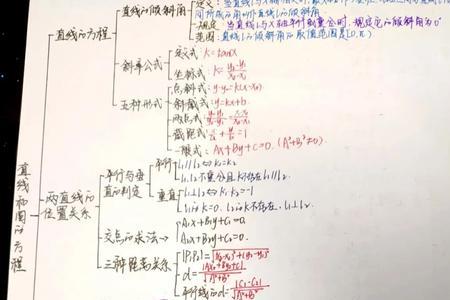 直线的倾斜角
规定:当直线l与x轴平行或重合时,规定它的倾斜角为0°
范围:直线l的倾斜角的取值范围是[0,π)
直线的方程
斜率公式
定义式:k=tanα
坐标式:k=\frac{y₂-y₁}{x₂-x₁}
五种形式
点斜式:y-y₀=k(x-x₀)
斜截式:y=kx+b
两点式:\frac{y-y₁}{y₂-y₁}=\frac{x-x₁}{x₂-x₁}
截距式:\frac{x}{a}+\frac{y}{b}=1
一般式:Ax+By+C=0.(A²+B²≠0)
直线和圆的方程
两直线的位置关系
平行与垂直的判定
平行
l₁∥l₂⇔k₁=k₂
l₁,l₂不重合且k不存在l₁∥l₂
垂直
l₁⊥l₂⇔k₁·k₂=-1
k=0,
k不存在,l₁⊥l₂
交点的求法→
A₁x+B₁y+C₁=0
A₂x+B₂y+C₂=0.
三种距离关系
|P₁P₂|=\sqrt{(x₂-x₁)²+(y₂-y₁)²}
d=\frac{|Ax₀+By₀+C|}{\sqrt{A²+B²}}
平行线的d=\frac{|C₁-C₂|}{\sqrt{A²+B²}}